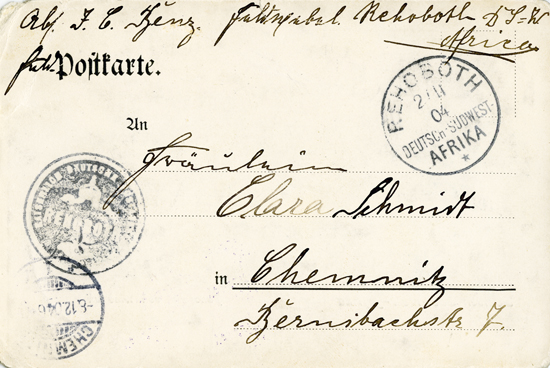 Abs. F. C. Benz. Feldwebel. Rehoboth D-S-W
Africa
Postkarte.
REHOBOTH
2/11
04
DEUTSCH-SÜDWEST-
AFRIKA
An
Fräulein
Clara Schmidt
in Chemnitz
Bernsbachstr 7.
8.12.04
CHEMN